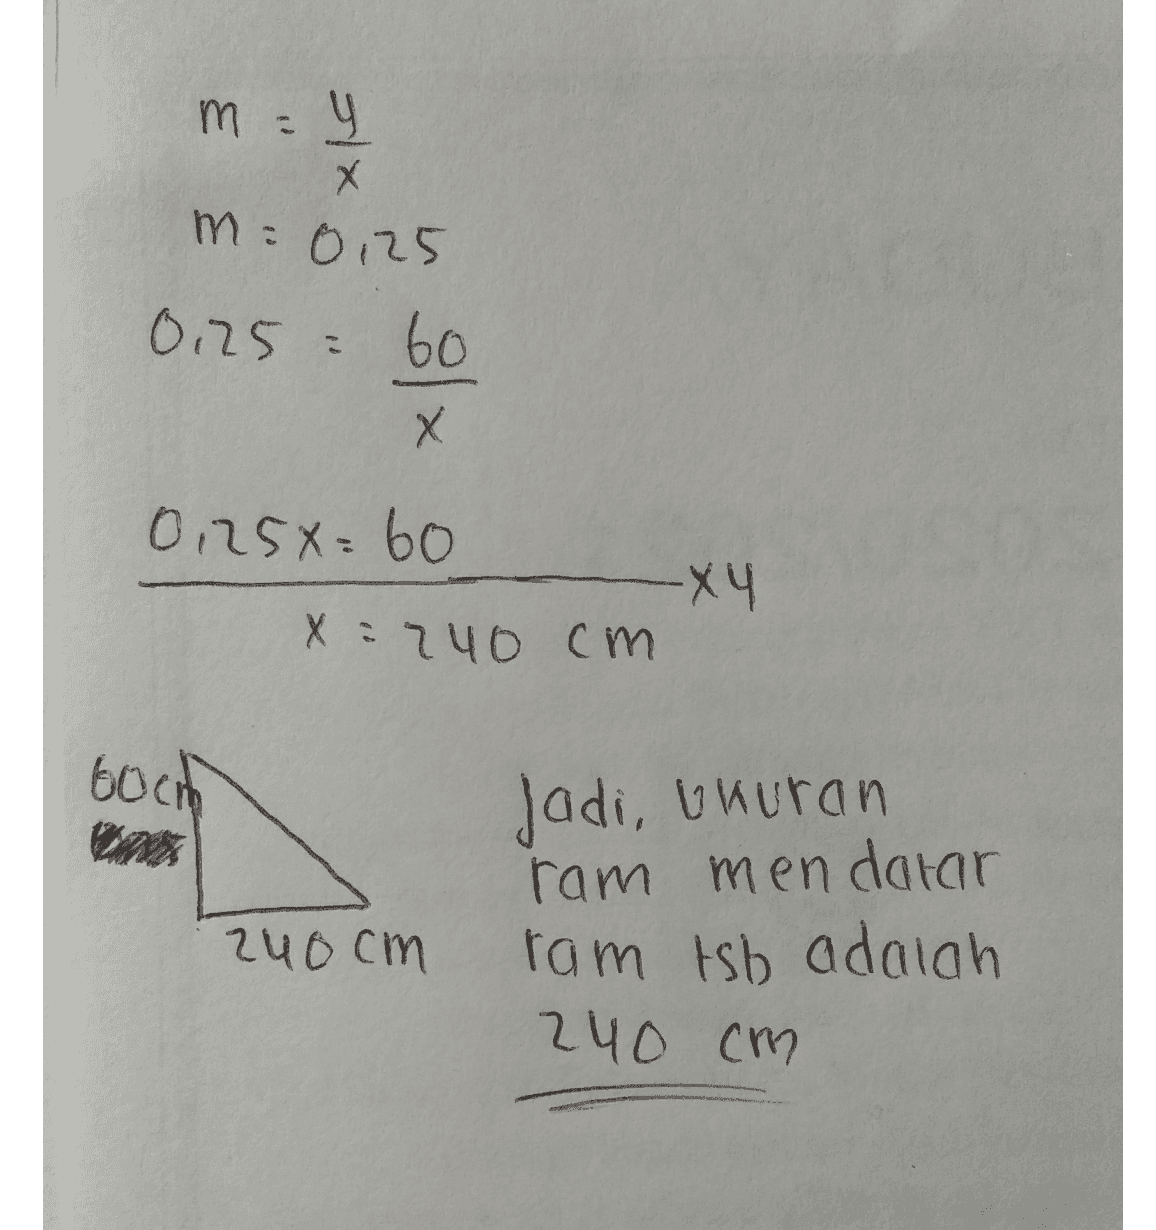 m = y
x
m = 0,25
0,25 = 60
x
0,25x = 60
x4
x = 240 cm
60 cm
240 cm
Jadi, ukuran
ram mendatar
ram tsb adalah
240 cm